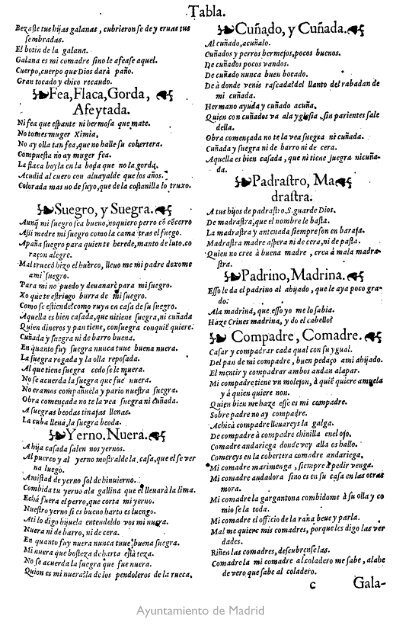 Tabla.
Bezaste tus hijas galanas, cubrieronse de y eruas tus
sembradas.
El botin de la galana.
Galana es mi comadre sino le afease aquel.
Cuerpo, cuerpo que Dios darà paño.
Gran tocado y chico recaudo.
Fea, Flaca, Gorda,
Afeytada.
Ni fea que espante ni hermosa que mate.
No tomes muger Ximia,
No ay olla tan fea, que no halle su cobertera.
Compuesta no ay muger fea.
La flaca boyla en la boda que no la gorda,
Acudid al cuero con aluayalde que los años.
Colorada mas no de suyo, que de la costanilla lo truxo.
Suegro, y Suegra.
Aunq mi suegro sea bueno, no quiero perro cō cēcerro
Assi medre mi suegro como la cama tras el fuego.
Apaña suegro para quien te herede, manto de luto, co
raçon alegre.
Mal trueco hizo el huerco, lleuo me mi padre dexome
ami suegro.
Para mi no puedo y deuanarè para mi suegro.
No quiete estriego burra de mi suegro.
Como se estiende como ruya en casa de su suegro.
Aquella es bien casada, que ni tiene suegra, ni cuñada
Quien dineros y pan tiene, consuegra conquiē quiere.
Cuñada y suegra ni de barro buena.
En quanto fuy suegra nunca tuue buena nuera.
La suegra rogada y la olla reposada.
Al que tiene suegra cedo se le muera.
No se acuerda la suegra que fue nuera.
No oramos compañuela y pario nuestra suegra.
Obra començada no te la vea suegra ni cuñada.
A suegras beodas tinajas llenas.
La cuba llena, la suegra beoda.
Yerno, Nuera.
A hija casada salen nos yernos.
Al puerco y al yerno mostralde la casa, que el se ver
na luego.
Amistad de yerno sol de hinuierno.
Combida tu yerno ala gallina que el lleuarà la lima.
Echà fuera el perro, que corta mi yerno.
Nuestro yerno si es bueno harto es luengo.
Ati lo digo hijuela entendeldo vos mi nuera.
Nuera ni de barro, ni de cera.
En quanto fuy nuera nunca tuue buena suegra.
Mi nuera que bosteza de harta està teza.
No se acuerda la suegra que fue nuera.
Quien es mi nuera? la de los pendoleros de la rueca.
Cuñado, y Cuñada.
Al cuñado, acuñalo.
Cuñados y perros bermejos, pocos buenos.
De cuñados pocos vandos.
De cuñado nunca buen bocado.
De à donde venis rascada? del llanto del rabadan de
mi cuñada.
Hermano ayuda y cuñado acuña.
Quien con cuñados va ala yglesia sin parientes sale
della.
Obra començada no te la vea suegra ni cuñada.
Cuñada y suegra ni de barro ni de cera.
Aquella es bien casada, que ni tiene suegra ni cuña-
da.
Padrastro, Ma
drastra.
A tus hijos de padrastro, S. guarde Dios.
De madrastra, que el nombre le basta.
La madrastra y antenada siempre son en baraja.
Madrastra madre aspera ni de cera, ni de pasta.
Quien no cree à buena madre, crea à mala madra-
stra.
Padrino, Madrina.
Esso le da el padrino al ahijado, que le aya poco gra-
do.
Ala madrina, que esso yo me lo sabia.
Haze Crines madrina, y do el cabello?
Compadre, Comadre.
Casar y compadrar cada qual con su ygual.
Del pan de mi compadre, buen pedaço ami ahijado.
El mentir y compadrar ambos andan alapar.
Mi compadre tiene vn molejon, à quiē quiere amuela
y à quien quiere non.
Quien bien me haze esse es mi compadre.
Sobre padre no ay compadre.
Achica compadre lleuareys la galga.
De compadre à compadre chinilla en el ojo.
Comadre andariega donde voy alla os hallo.
Comereys en la cobertera comadre andariega,
Mi comadre marimenga, siempre à pedir venga.
Mi comadre andadora sino es en su casa en las otras
mora.
Mi comadre la gargantona combidome à su olla y co
mio se la toda.
Mi comadre el officio de la raña beue y parla.
Mal me quiere mis comadres, porque les digo las ver
dades.
Riñen las comadres, descubrense las.
Comadre la mi comadre al coladero me sabe, alabe
de vero que sabe al coladero.
C
Gala-
Ayuntamiento de Madrid